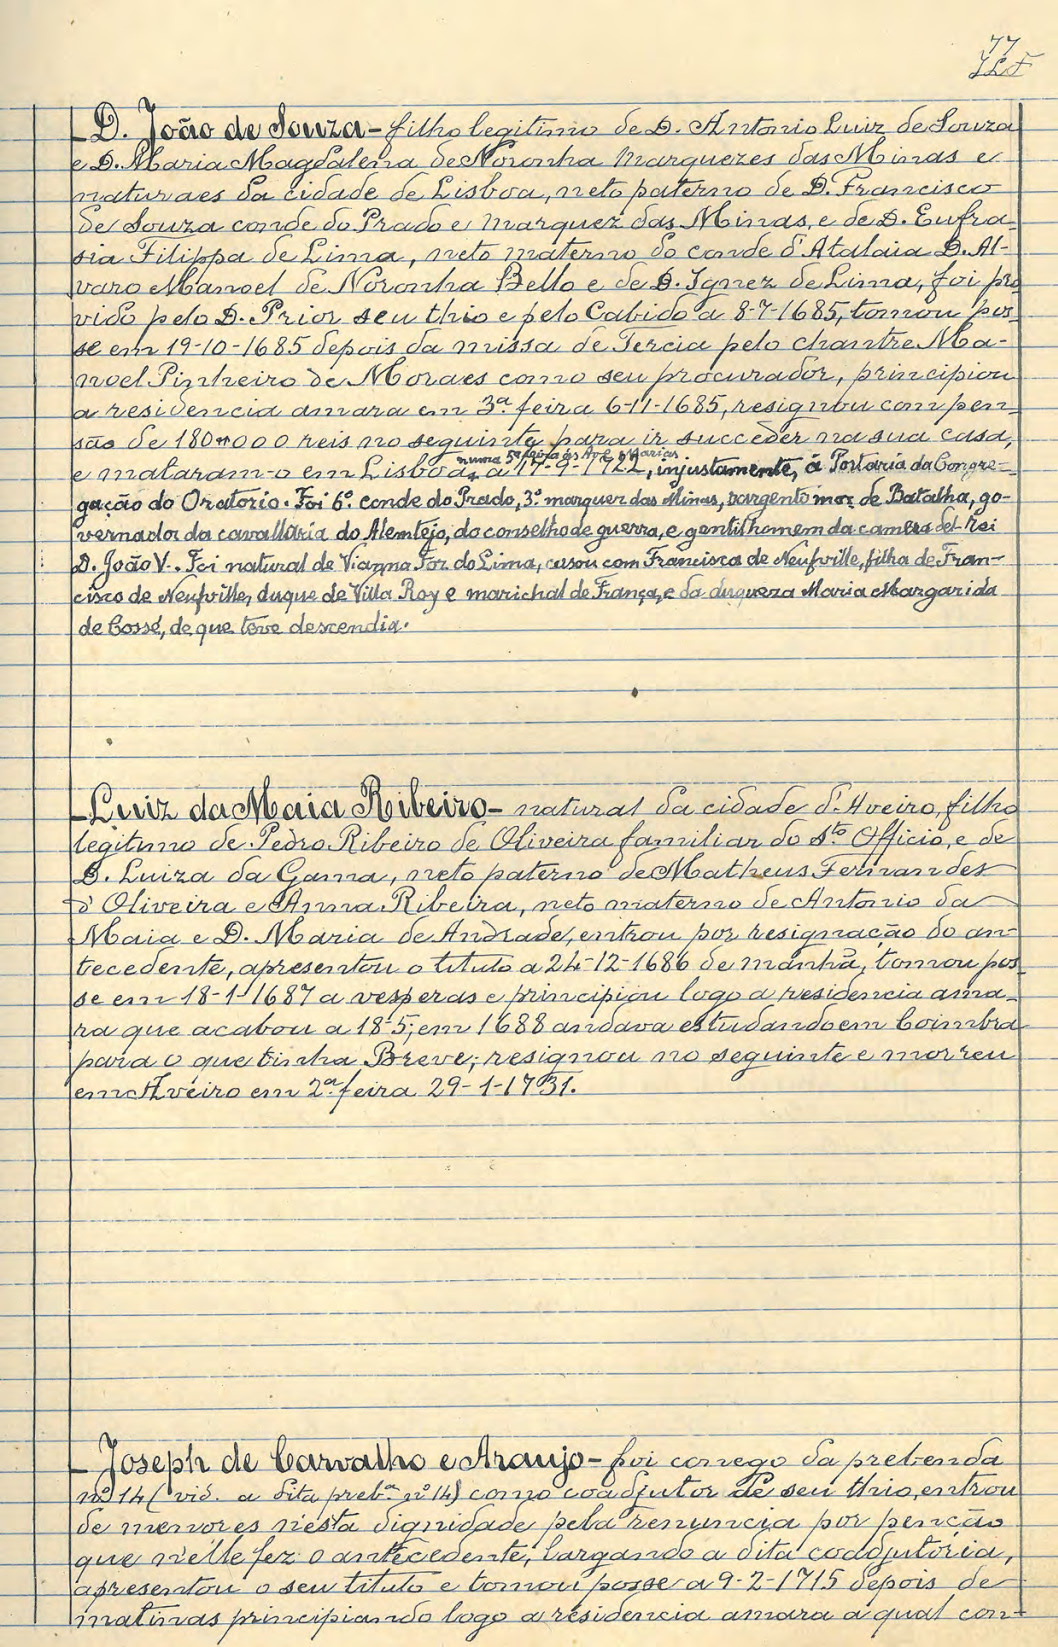 77
D. João de Souza - filho legitimo de D. Antonio Luiz de Souza
e D. Maria Magdalena de Noronha Marquezes das Minas e
naturaes da cidade de Lisboa, neto paterno de D. Francisco
de Souza conde do Prado e Marquez das Minas, e de D. Eufra-
sia Filippa de Lima, neto materno do conde d'Atalaia D. Al-
varo Manoel de Noronha Bello e de D. Ignez de Lima, foi pro
vido pelo D. Prior seu thio e pelo Cabido a 8-7-1685, tomou pos-
se em 19-10-1685 depois da missa de Tercia pelo chantre Ma-
noel Pinheiro de Moraes como seu procurador, principiou
a residencia amara em 3ª feira 6-11-1685, resignou com pen-
são de 180#000 reis no seguinte para ir succeder na sua casa,
numa 5ª feira ás Ave Marias
e mataram-o em Lisboa, a 17-9-1722, injustamente, á Portaria da Congre-
gação do Oratorio. Foi 6º conde do Prado, 3º marquez das Minas, sargento mor de Batalha, go-
vernador da cavallaria do Alemtejo, do conselho de guerra, e gentilhomem da camera del-rei
D. João V. Foi natural de Vianna Foz do Lima, casou com Francisca de Neufville, filha de Fran-
cisco de Neufville, duque de Villa Roy e marichal de França, e da duqueza Maria Margarida
de Cossé, de que teve descendia.
Luiz da Maia Ribeiro - natural da cidade d'Aveiro, filho
legitimo de Pedro Ribeiro de Oliveira familiar do Sto Officio, e de
D. Luiza da Gama, neto paterno de Matheus Fernandes
d'Oliveira e Anna Ribeira, neto materno de Antonio da
Maia e D. Maria de Andrade, entrou por resignação do an-
tecedente, apresentou o titulo a 24-12-1686 de manhã, tomou pos-
se em 18-1-1687 a vesperas e principiou logo a residencia ama-
ra que acabou a 18-5; em 1688 andava estudando em Coimbra
para o que tinha Breve; resignou no seguinte e morreu
em Aveiro em 2ª feira 29-1-1731.
Joseph de Carvalho e Araujo - foi conego da prebenda
nº 14 (vid. a dita prebª nº 14) como coadjutor de seu thio, entrou
de menores n'esta dignidade pela renuncia por penção
que n'elle fez o antecedente, largando a dita coadjutoria,
apresentou o seu titulo e tomou posse a 9-2-1715 depois de
matinas principiando logo a residencia amara a qual con-